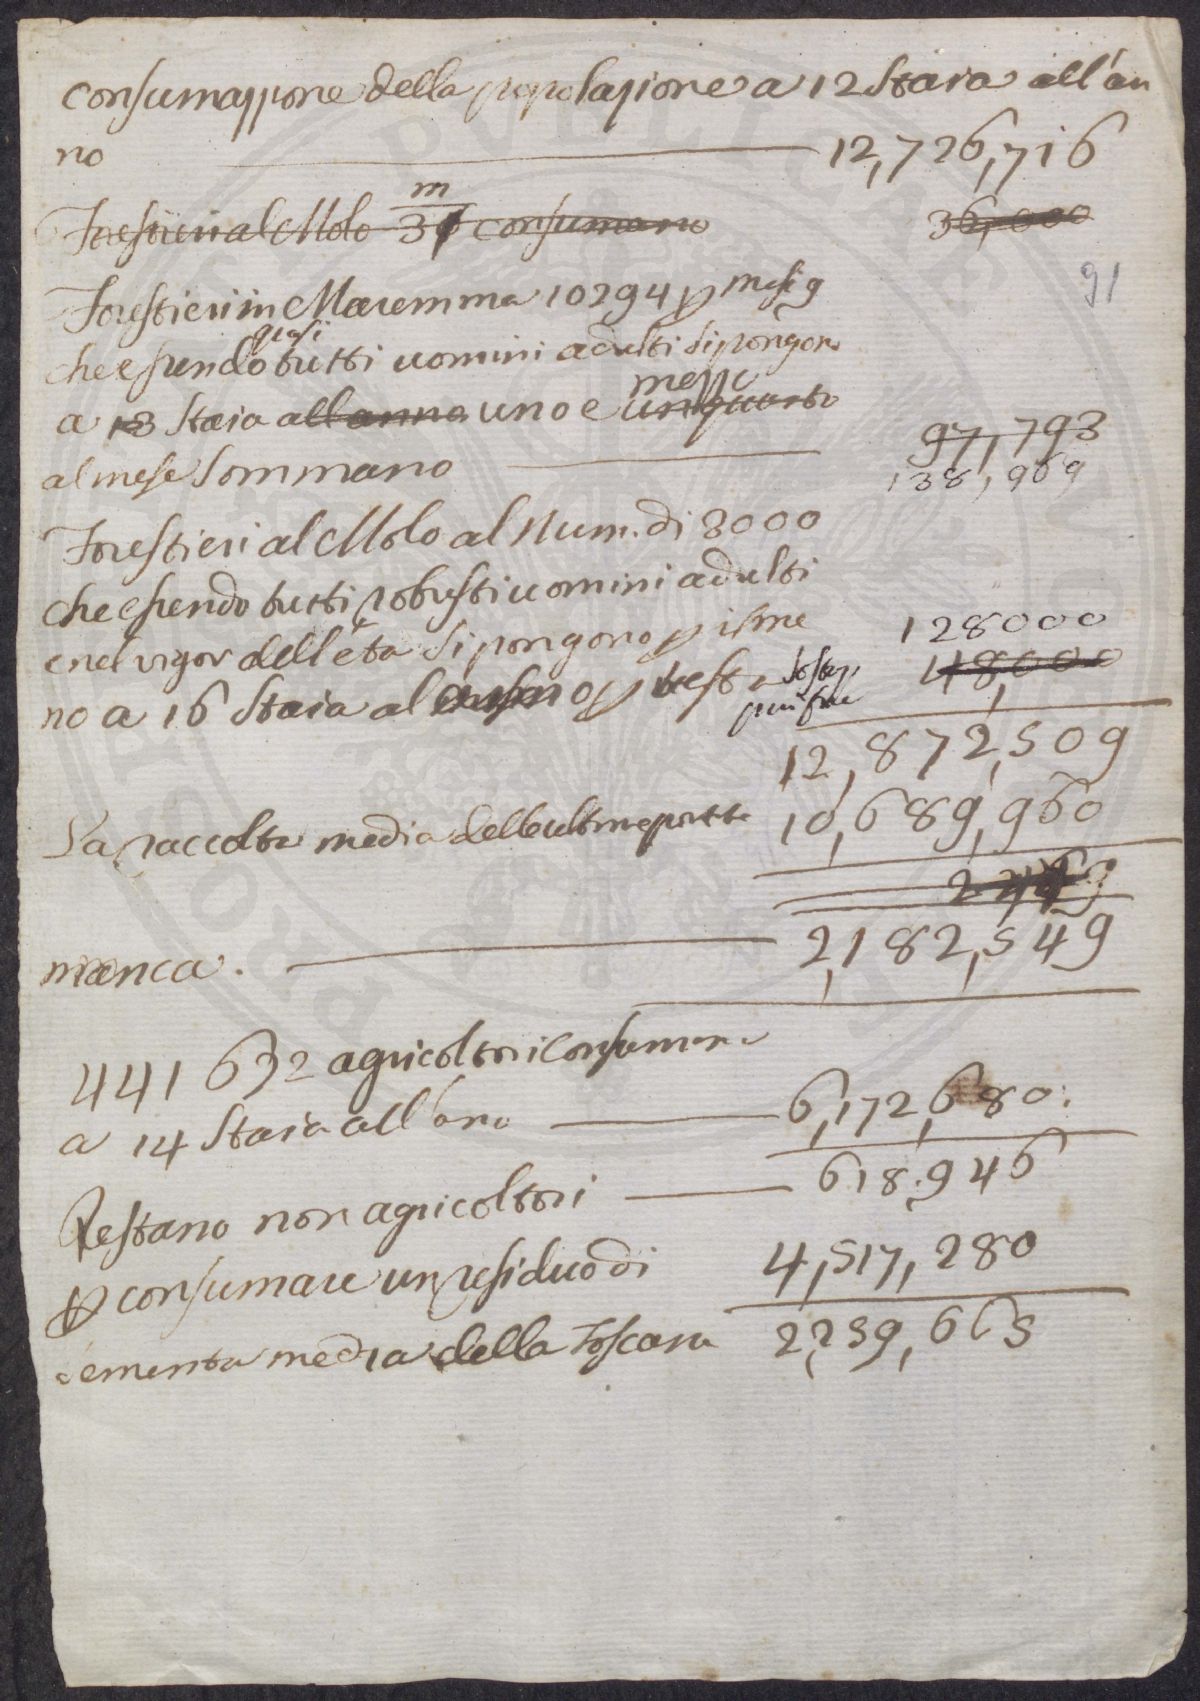 consumazzione della popolazione a 12 Staia all'an
no 12,726,716
Forestieri al Molo 3 m consumano 36,000
91
Forestieri in Maremma 10294 p mesi 9
che essendo quasi tutti uomini adulti si pongono
a 13 Staia all anno uno e un quarto mezzo
al mese Sommano 97,793
138,969
Forestieri al Molo al Num. di 8000
che essendo tutti robusti uomini adulti
e nel vigor dell'età si pongono p 128000
no a 16 Staia al p 48,000
12,872,509
La raccolta media dell'ultime 10,689,960
manca. 2,182,549
441 632 agricoltori Consumano
a 14 Staia all'ano 6,172,680.
Restano non agricoltori 618,946
p consumare un residuo di 4,517,280
sementa media della Toscana 2259,665